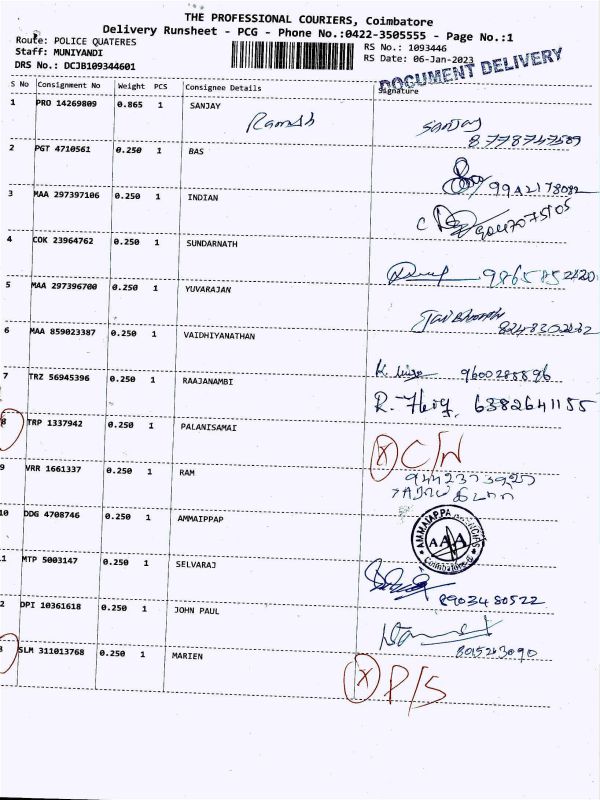 THE PROFESSIONAL COURIERS, Coimbatore
Delivery Runsheet - PCG - Phone No.:0422-3505555 - Page No.:1
Route: POLICE QUATERES RS No.: 1093446
Staff: MUNIYANDI RS Date: 06-Jan-2023
DRS No.: DCJB109344601 DOCUMENT DELIVERY
S No Consignment No Weight PCS Consignee Details Signature
1 PRO 14269809 0.865 1 SANJAY
Ramesh Sanjay
8778747589
2 PGT 4710561 0.250 1 BAS
9942178082
3 MAA 297397106 0.250 1 INDIAN
9047075105
4 COK 23964762 0.250 1 SUNDARNATH
9865852420
5 MAA 297396700 0.250 1 YUVARAJAN
8248302232
6 MAA 859023387 0.250 1 VAIDHIYANATHAN
9600288896
7 TRZ 56945396 0.250 1 RAAJANAMBI
6382641155
8 TRP 1337942 0.250 1 PALANISAMAI
X C/N
9 VRR 1661337 0.250 1 RAM
10 DDG 4708746 0.250 1 AMMAIPPAP
AMMAIAPPA
AAA
Coimbatore
11 MTP 5003147 0.250 1 SELVARAJ
8903480522
2 DPI 10361618 0.250 1 JOHN PAUL
3 SLM 311013768 0.250 1 MARIEN
X P/S